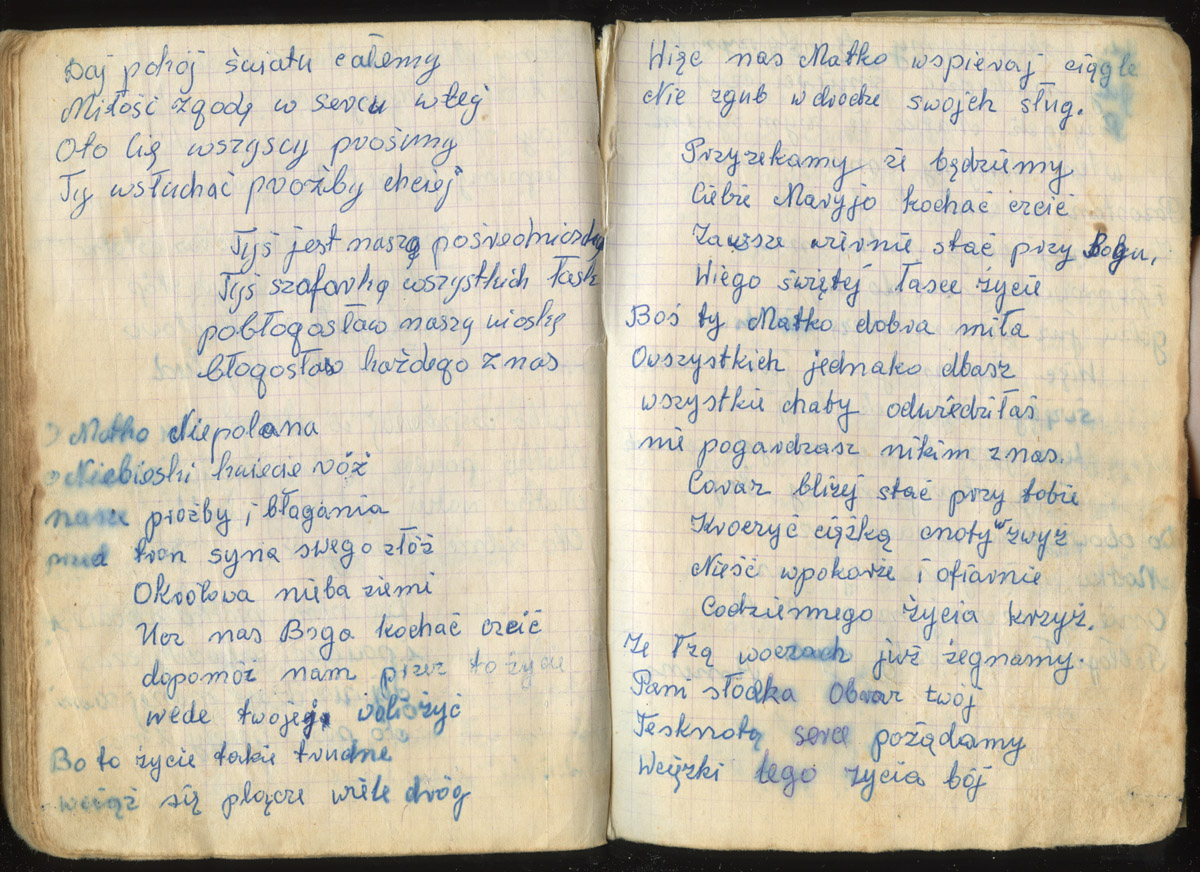 Daj pokój światu całemy
Miłość zgodę w sercu wlej
Oto Cię wszyscy prośimy
Ty wsłuchać prożby chciej
Tyś jest naszą pośredniczką
Tyś szafarką wszystkich łask
pobłogosław naszą wioskę
błogosław każdego z nas
Matko Niepolana
Niebioski kwiecie róż
nasze prożby i błagania
przed tron syna swego złóż
Okrołowa nieba ziemi
Ucz nas Boga kochać czcić
dopomóż nam przez to życie
wede twojej woliżyć
Bo to życie takie trudne
wciąż się plącze wiele dróg
Więc nas Matko wspieraj ciągle
Nie zgub w drodze swojch sług.
Przyrekamy że będziemy
Ciebie Maryjo kochać czcić
Zawsze wiernie stać przy Bogu,
Wiego świętej łasce życie
Boś ty Matko dobra miła
Owszystkich jednako dbasz
wszystkie chaby odwiedziłaś
nie pogardzasz nikim z nas.
Coraz bliżej stać przy tobie
Kroczyć ciężką cnoty w zwyż
Nieść wpokorze i ofiarnie
Codziennego życia krzyż.
Ze łzą woczach już żegnamy.
Pani słodka Obraz twój
Tesknotą serce pożądamy
Wciężki tego życia bój